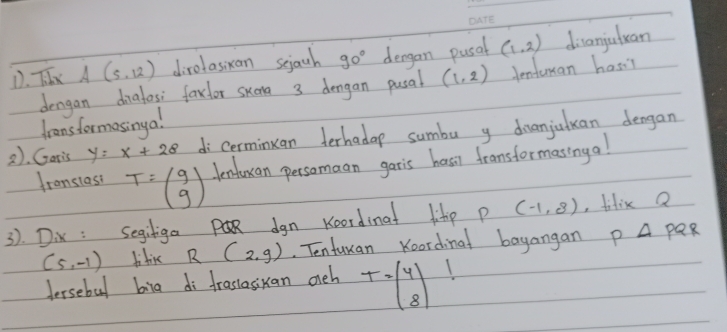 DATE
1). Titix A (5,12) dirotasixan sejauh 90° dengan pusat (1,2) disanjutxan
dengan dilatasi faxtor sxara 3 dengan pusat (1,2) tentuxan hasil
transformasinya!
2). Garis y = x + 28 di cerminxan terhadap sumbu y dilanjutxan dengan
translasi T = (9 9) tentuxan persamaan garis hasil transformasinya!
3). Dix : segitiga PQR dgn Koordinat titip P (-1,8), titix Q
(5,-1) titix R (2,9). Tentuxan Koordinat bayangan P Δ PQR
tersebut bila di traslasixan oleh T = (4 8) !